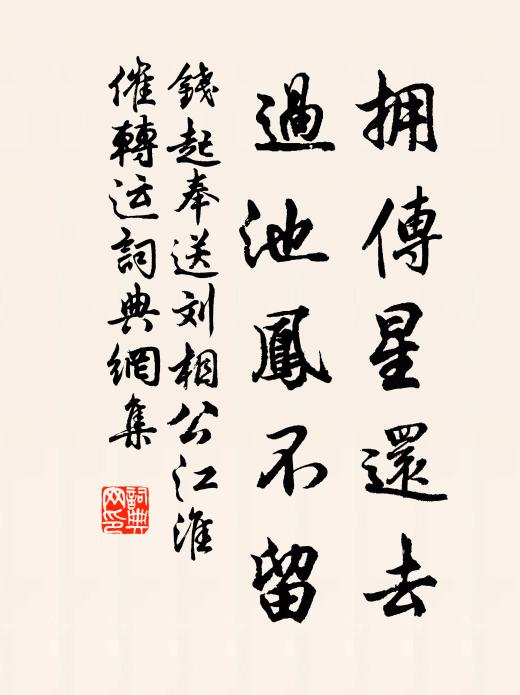 拥傳星還去
過池鳳不留
錢起奉送刘相公江淮
催轉运詞典網集
詞典网印